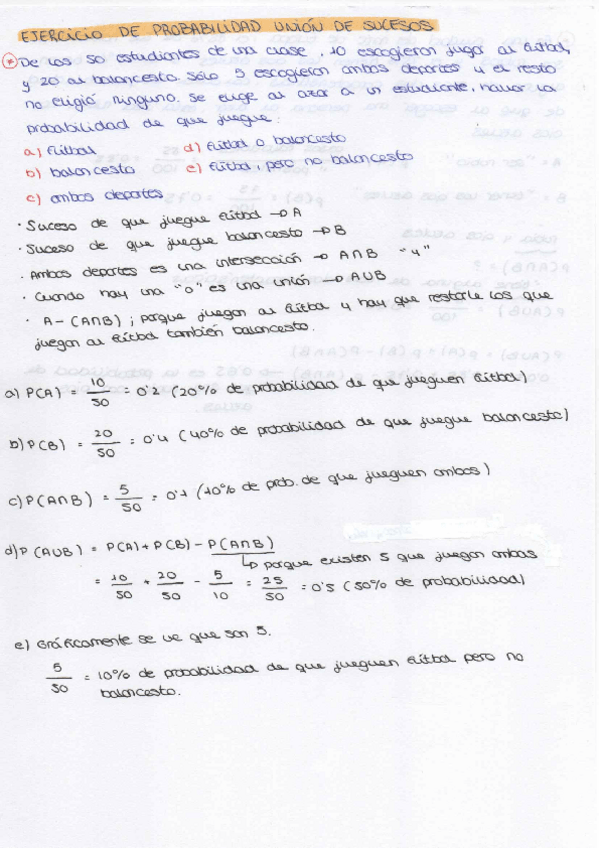 EJERCICIO DE PROBABILIDAD UNIÓN DE SUCESOS
* De los 50 estudiantes de una clase, 10 escogieron jugar al fútbol,
y 20 al baloncesto. Sólo 5 escogieron ambos deportes y el resto
no eligió ninguno. Se elige al azar a un estudiante, hallar la
probabilidad de que juegue:
a) fútbol
d) fútbol o baloncesto
b) baloncesto
e) fútbol, pero no baloncesto
c) ambos deportes
· Suceso de que juegue fútbol → A
· Suceso de que juegue baloncesto → B
· Ambos deportes es una intersección → A∩B "y"
· Cuando hay una "o" es una unión → A∪B
· A - (A∩B) ; porque juegan al fútbol y hay que restarle los que
juegan al fútbol también baloncesto.
a) P(A) = 10/50 = 0'2 (20% de probabilidad de que jueguen fútbol)
b) P(B) = 20/50 = 0'4 (40% de probabilidad de que juegue baloncesto)
c) P(A∩B) = 5/50 = 0'1 (10% de prob. de que jueguen ambos)
d) P(A∪B) = P(A) + P(B) - P(A∩B)
↳ porque existen 5 que juegan ambas
= 10/50 + 20/50 - 5/10 = 25/50 = 0'5 (50% de probabilidad)
e) Gráficamente se ve que son 5.
5/50 = 10% de probabilidad de que jueguen fútbol pero no
baloncesto.